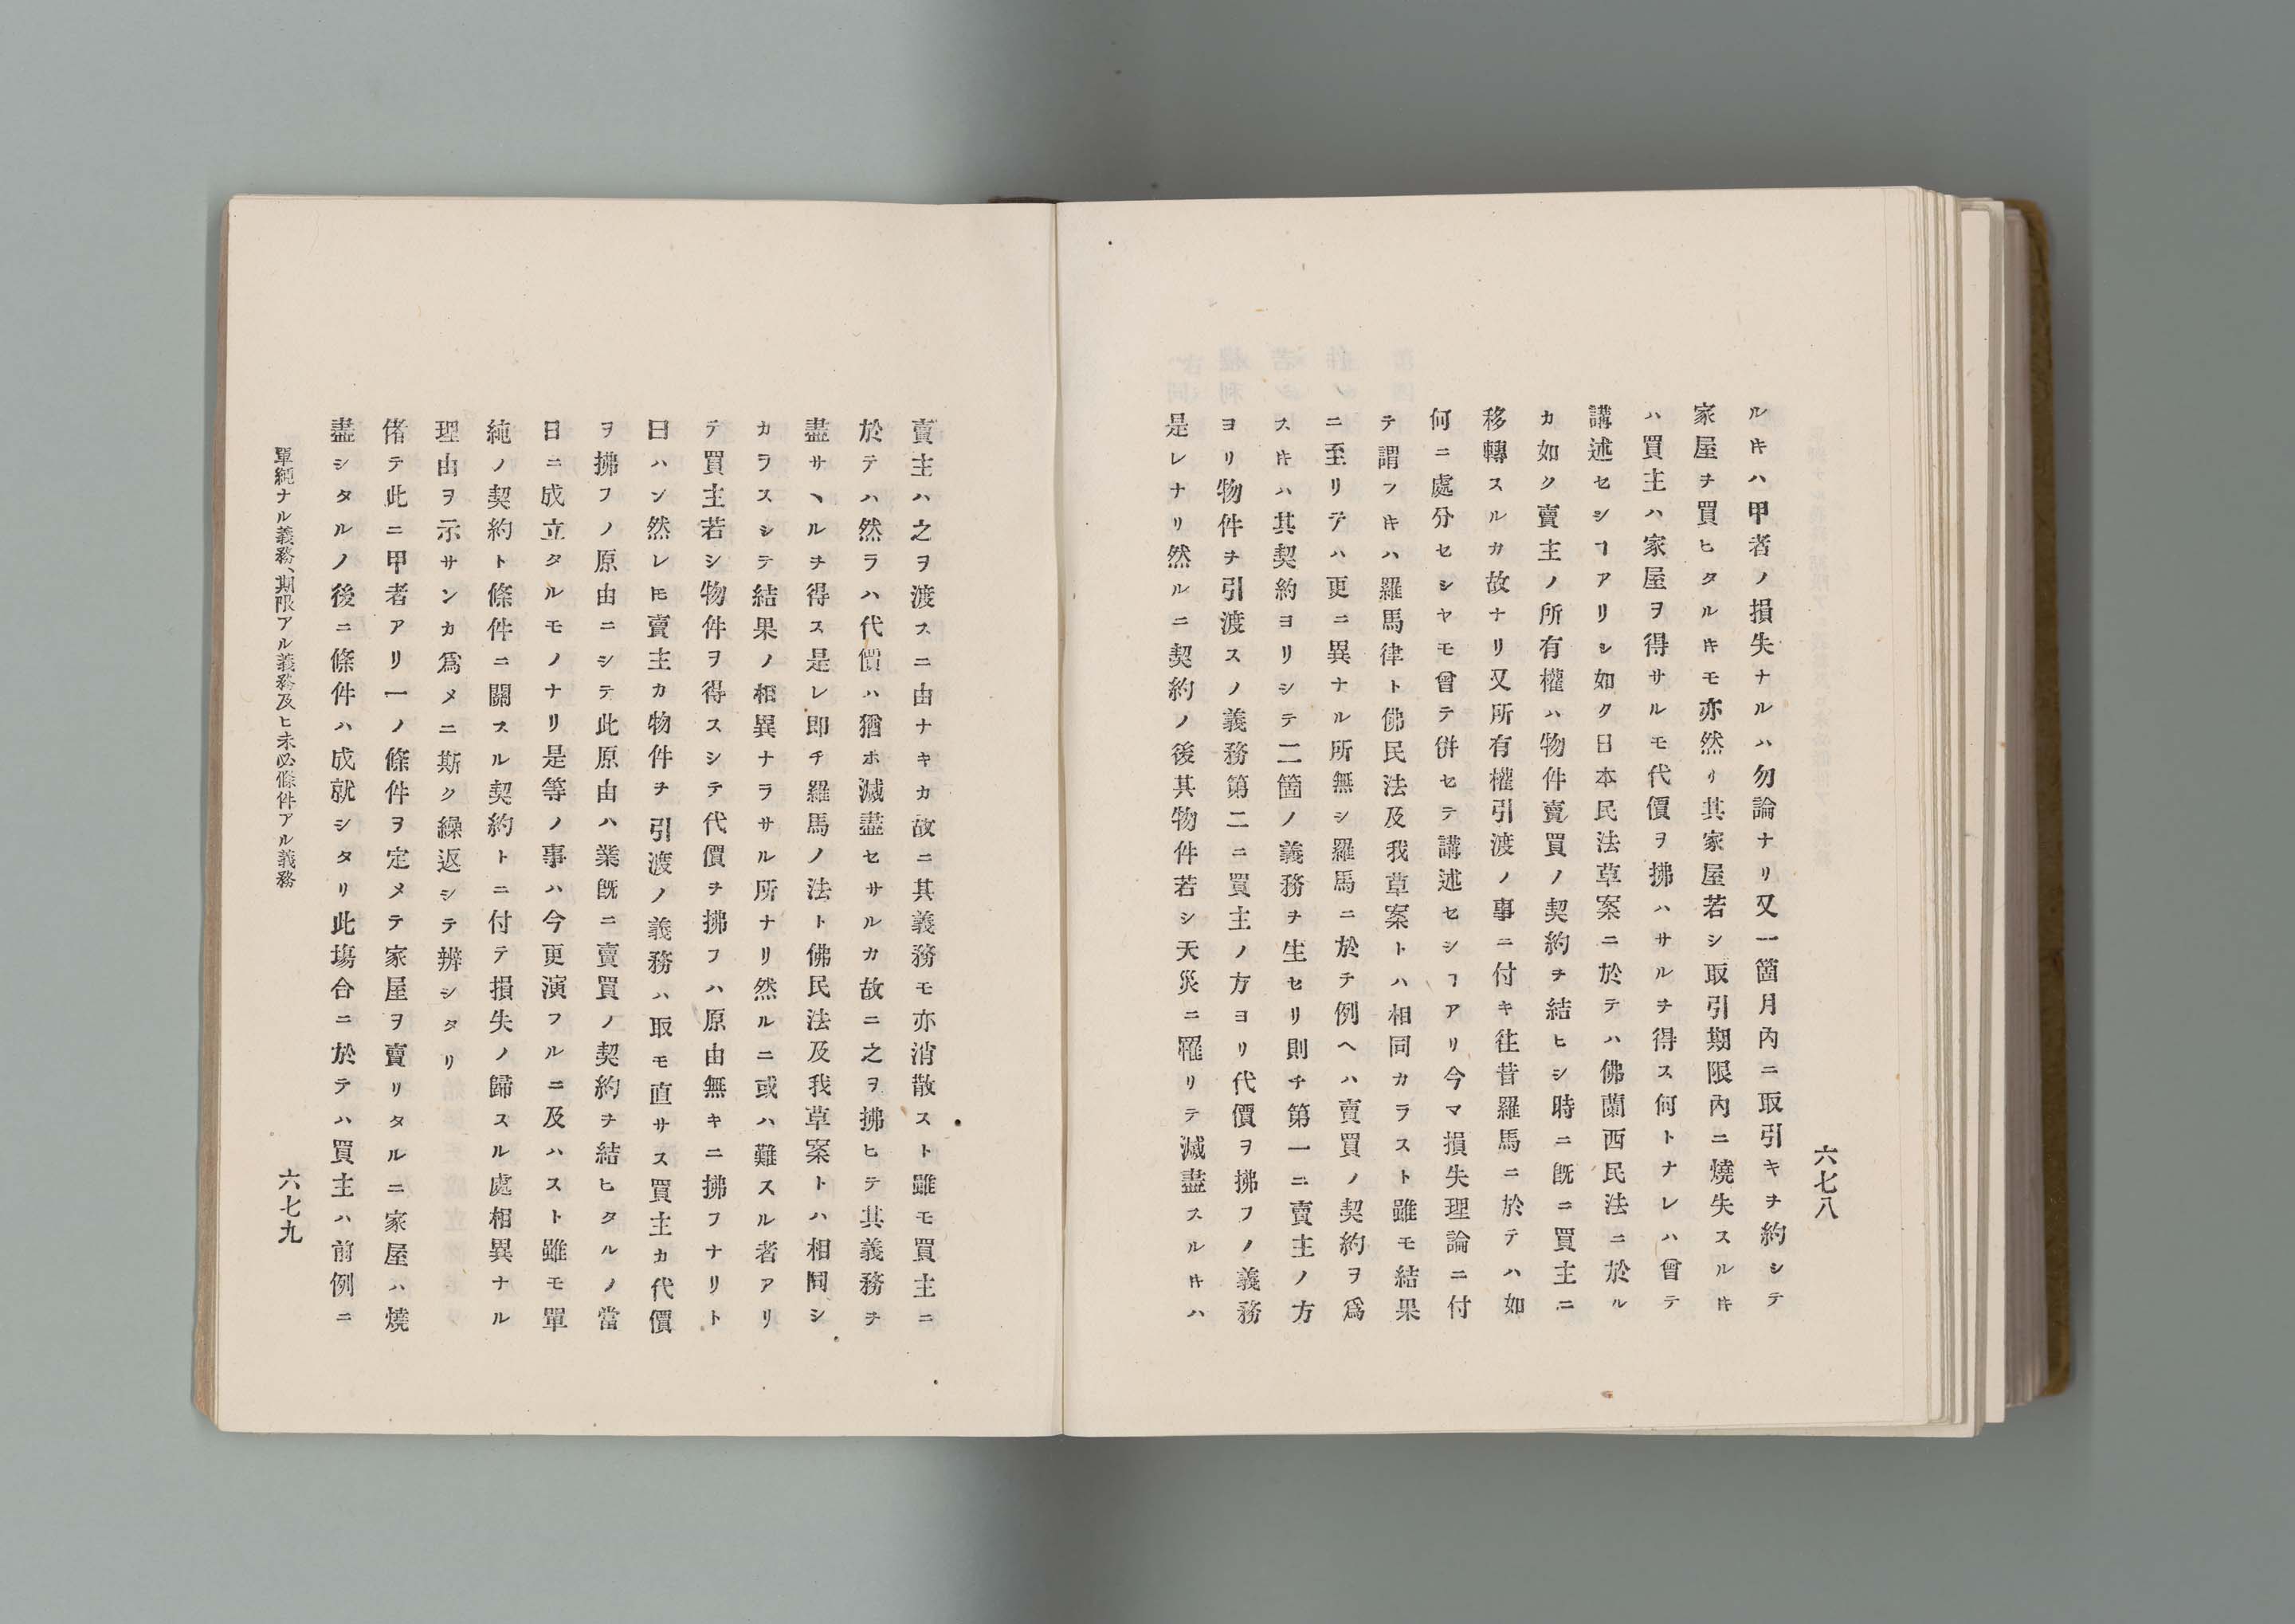 六七八
ルキハ甲者ノ損失ナルハ勿論ナリ又一箇月內ニ取引キヲ約シテ
家屋ヲ買ヒタルキモ亦然リ其家屋若シ取引期限內ニ燒失スルキ
ハ買主ハ家屋ヲ得サルモ代價ヲ拂ハサルヲ得ス何トナレハ曾テ
講述セシヿアリシ如ク日本民法草案ニ於テハ佛蘭西民法ニ於ル
カ如ク賣主ノ所有權ハ物件賣買ノ契約ヲ結ヒシ時ニ旣ニ買主ニ
移轉スルカ故ナリ又所有權引渡ノ事ニ付キ往昔羅馬ニ於テハ如
何ニ處分セシヤモ曾テ併セテ講述セシヿアリ今マ損失理論ニ付
テ謂フキハ羅馬律ト佛民法及我草案トハ相同カラスト雖モ結果
ニ至リテハ更ニ異ナル所無シ羅馬ニ於テ例ヘハ賣買ノ契約ヲ爲
スキハ其契約ヨリシテ二箇ノ義務ヲ生セリ則チ第一ニ賣主ノ方
ヨリ物件ヲ引渡スノ義務第二ニ買主ノ方ヨリ代價ヲ拂フノ義務
是レナリ然ルニ契約ノ後其物件若シ天災ニ罹リテ滅盡スルキハ
賣主ハ之ヲ渡スニ由ナキカ故ニ其義務モ亦消散スト雖モ買主ニ
於テハ然ラハ代價ハ猶ホ滅盡セサルカ故ニ之ヲ拂ヒテ其義務ヲ
盡サヽルヲ得ス是レ即チ羅馬ノ法ト佛民法及我草案トハ相同シ
カラスシテ結果ノ相異ナラサル所ナリ然ルニ或ハ難スル者アリ
テ買主若シ物件ヲ得スシテ代價ヲ拂フハ原由無キニ拂フナリト
曰ハン然レ𪜈賣主カ物件ヲ引渡ノ義務ハ取モ直サス買主カ代價
ヲ拂フノ原由ニシテ此原由ハ業旣ニ賣買ノ契約ヲ結ヒタルノ當
日ニ成立タルモノナリ是等ノ事ハ今更演フルニ及ハスト雖モ單
純ノ契約ト條件ニ關スル契約トニ付テ損失ノ歸スル處相異ナル
理由ヲ示サンカ爲メニ斯ク繰返シテ辨シタリ
偖テ此ニ甲者アリ一ノ條件ヲ定メテ家屋ヲ賣リタルニ家屋ハ燒
盡シタルノ後ニ條件ハ成就シタリ此塲合ニ於テハ買主ハ前例ニ
單純ナル義務、期限アル義務及ヒ未必條件アル義務
六七九